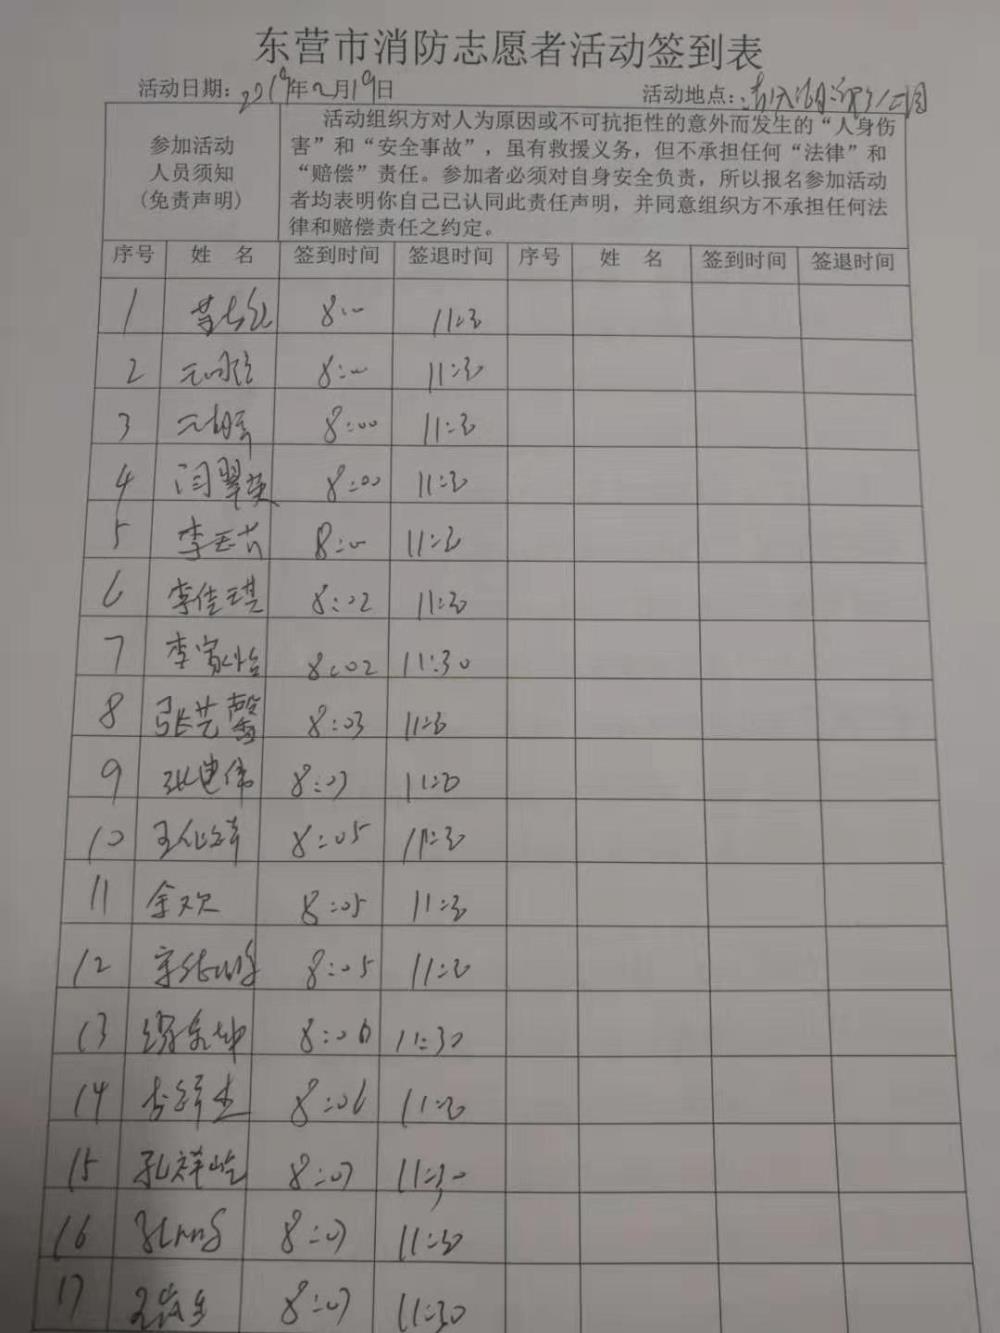 东营市消防志愿者活动签到表
活动日期：2019年2月19日 活动地点：
参加活动
人员须知
(免责声明)
活动组织方对人为原因或不可抗拒性的意外而发生的“人身伤
害”和“安全事故”，虽有救援义务，但不承担任何“法律”和
“赔偿”责任。参加者必须对自身安全负责，所以报名参加活动
者均表明你自己已认同此责任声明，并同意组织方不承担任何法
律和赔偿责任之约定。
序号 姓 名 签到时间 签退时间 序号 姓 名 签到时间 签退时间
1 8:00 11:30
2 8:00 11:30
3 8:00 11:30
4 闫翠英 8:00 11:30
5 8:00 11:30
6 李佳琪 8:02 11:30
7 李家怡 8:02 11:30
8 张艺馨 8:03 11:30
9 8:03 11:30
10 8:05 11:30
11 余欢 8:05 11:30
12 8:05 11:30
13 8:06 11:30
14 8:06 11:30
15 孔祥屹 8:07 11:30
16 8:07 11:30
17 8:07 11:30